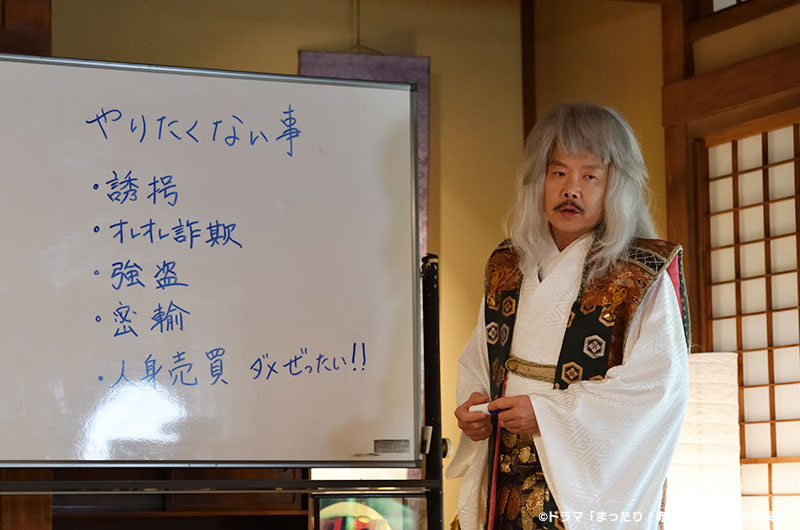 やりたくない事
・誘拐
・オレオレ詐欺
・強盗
・密輸
・人身売買 ダメぜったい!!
©ドラマ「まったり！